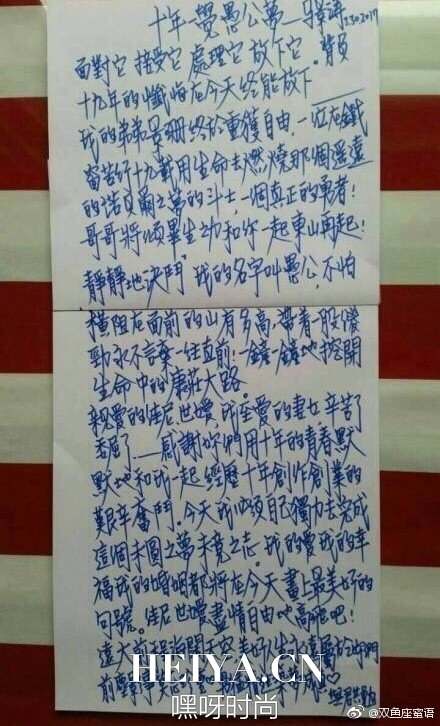 十年一覺愚公夢—馬景濤 2.30.2017
面對它 接受它 處理它 放下它。背負
十九年的懺悔在今天終能放下
我的弟弟吳珊終於重獲自由，一位在鐵
窗苦行十九載用生命去燃燒那個遙遠
的諾貝爾之夢的斗士，一個真正的勇者！
哥哥將傾畢生之力和你一起東山再起！
靜靜地決鬥，我的名字叫愚公，不怕
橫阻在面前的山有多高，帶着一股傻
勁永不言棄一往直前！一鏟一鏟地挖開
生命中的康莊大路。
親愛的佳尼，世嬡，我至愛的妻女辛苦了
委屈了——感謝你們用十年的青春默
默地和我一起經歷十年創作創業的
艱辛奮鬥。今天我必須自己獨力去完成
這個未圓之夢未竟之志。我的愛我的幸
福我的婚姻都將在今天畫上最美好的
句號。佳尼世嬡盡情自由地高飛吧！
遠大前程
HEIYA.CN
嘿呀时尚
@双鱼座蜜语